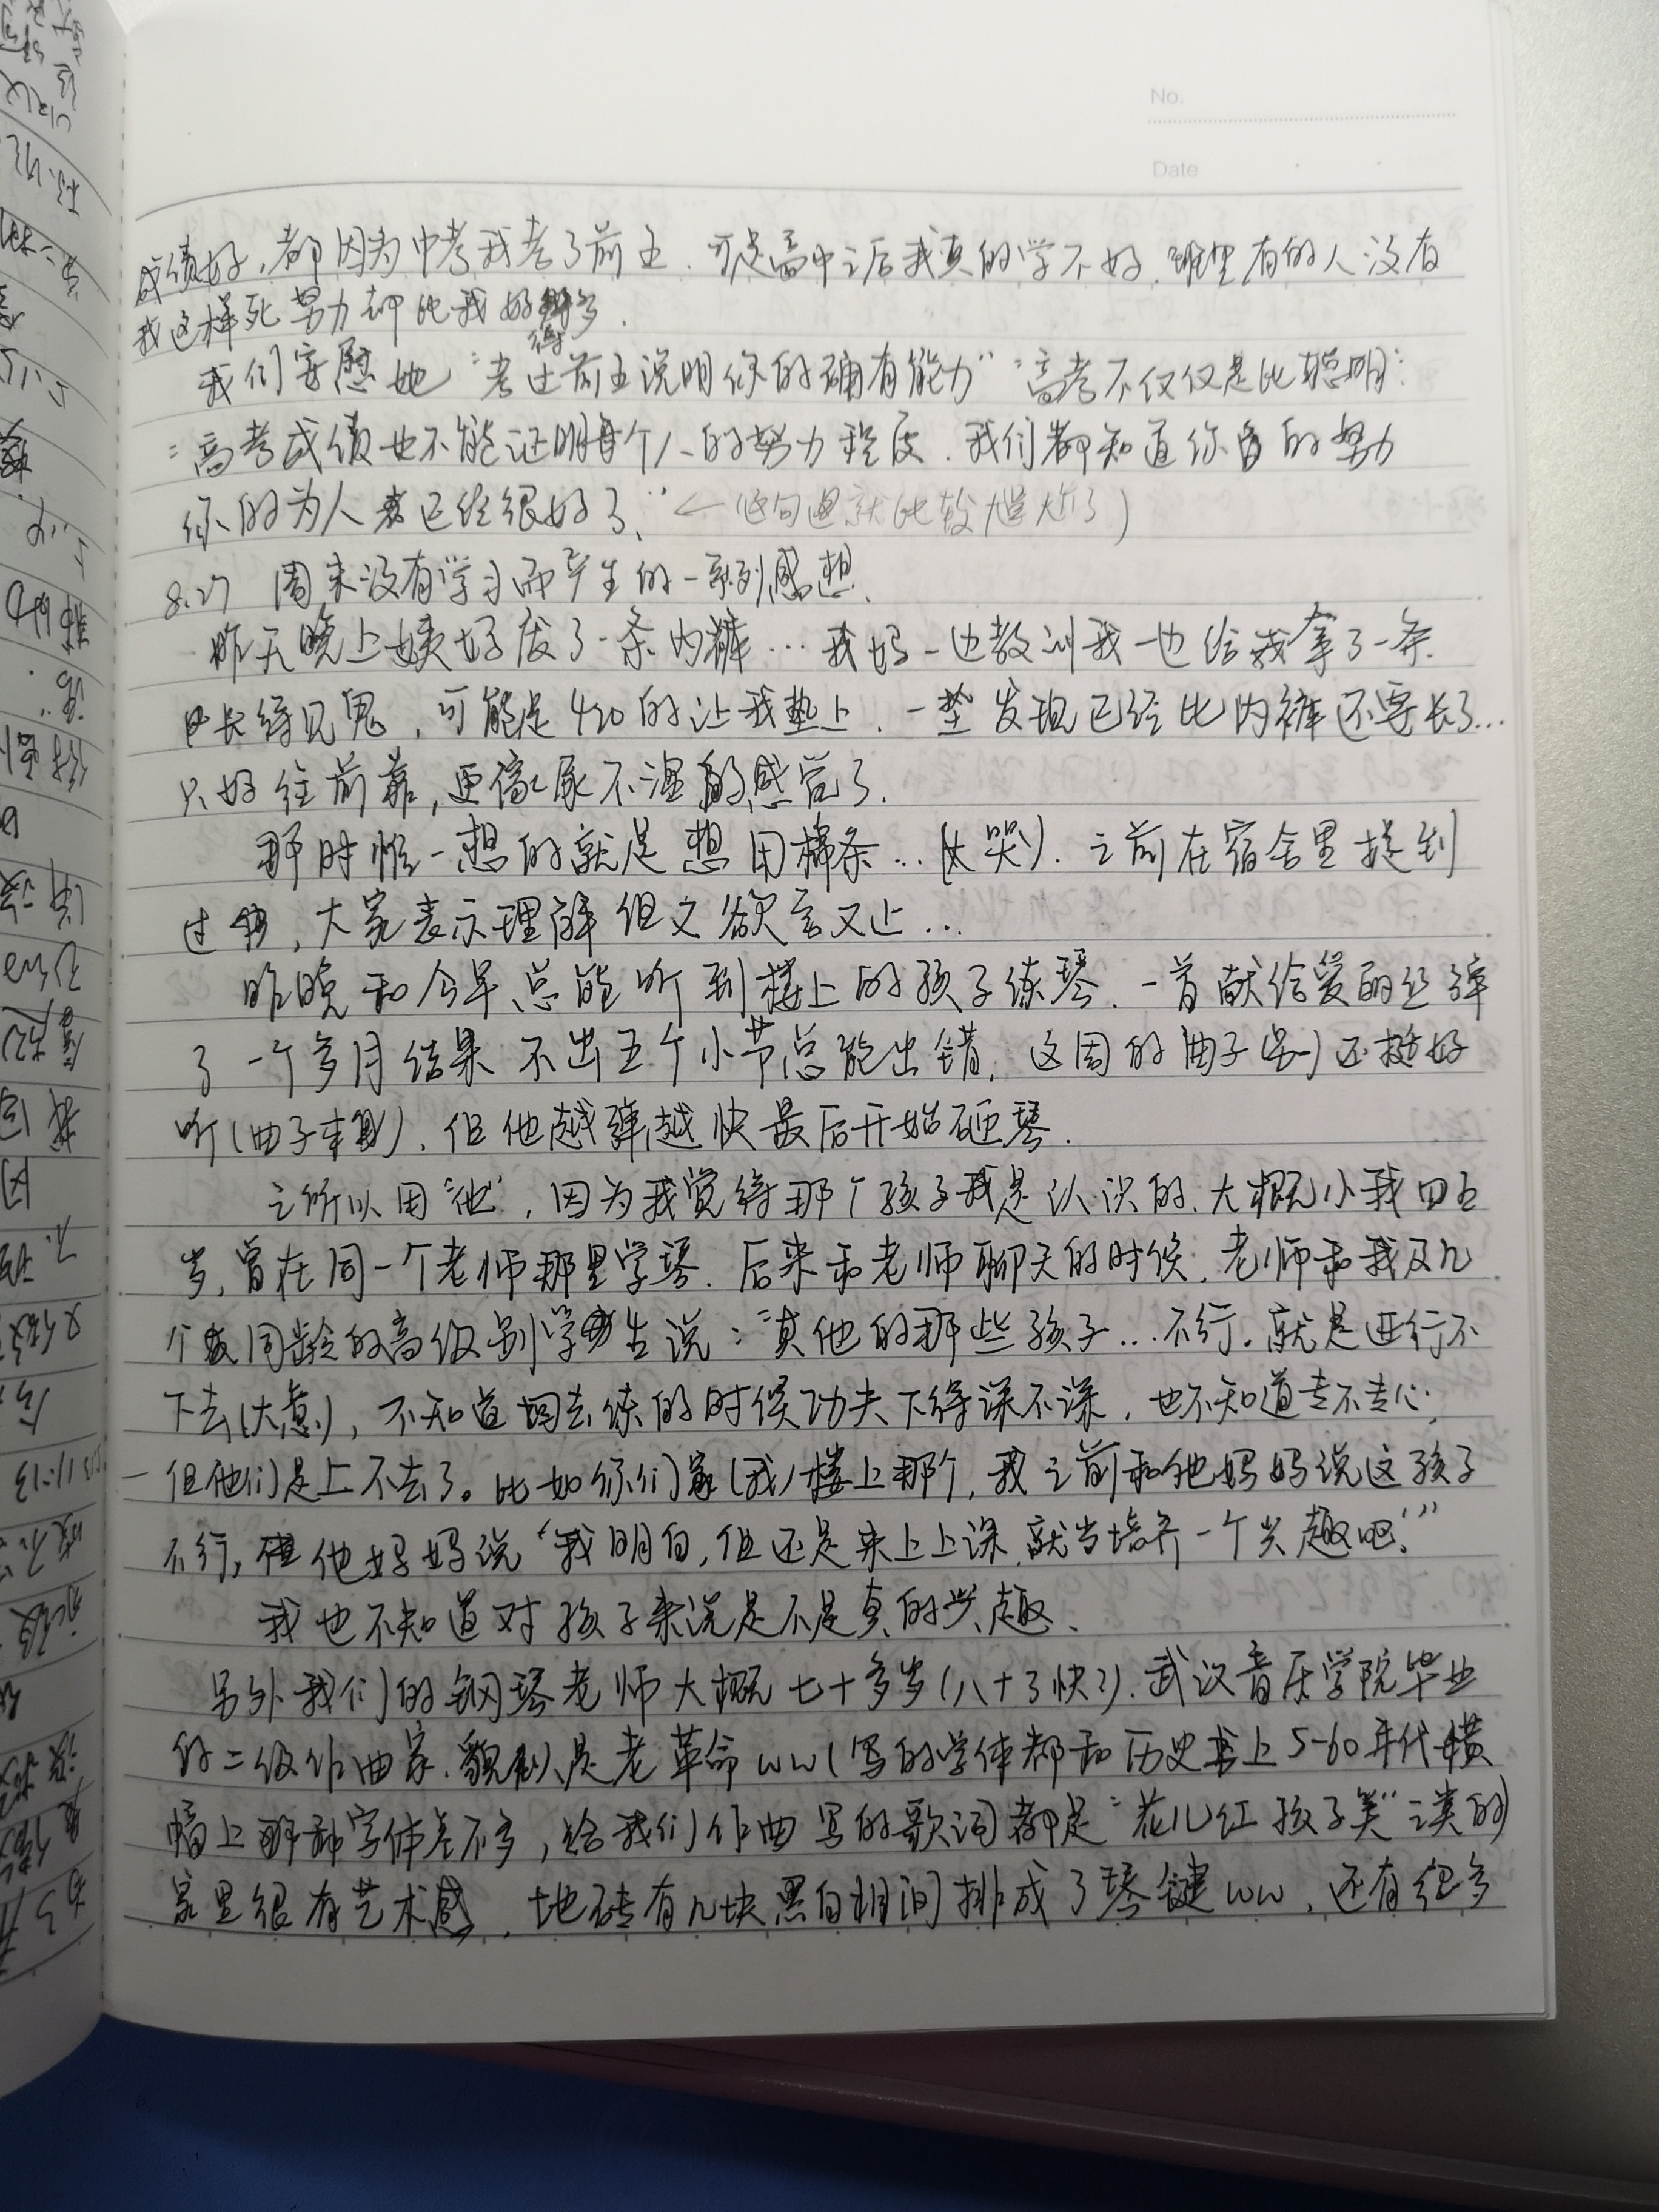 No.
Date
成绩好,都因为中考我考了前五.可是高中之后我真的学不好.班里有的人没有
我这样死努力却比我好得多.
我们安慰她"考进前五说明你的确有能力""高考不仅仅是比聪明"
"高考成绩也不能证明每个人的努力程度.我们都知道你的努力
你的为人已经很好了."←(这句话就比较尴尬了)
8.27 周末没有学习而产生的一系列感想.
昨天晚上姨妈废了一条内裤…我妈一边教训我一边给我拿了一条
长得见鬼,可能是420的让我垫上.一垫发现已经比内裤还要长了…
只好往前靠,更像尿不湿的感觉了.
那时惟一想的就是想用棉条…(大哭).之前在宿舍里提到
过,大家表示理解但又欲言又止…
昨晚和今早总能听到楼上的孩子练琴.一首献给爱丽丝弹
了一个多月结果不出五个小节总能出错.这周的曲子还挺好
听(曲子本身).但他越弹越快最后开始砸琴.
之所以用"他",因为我觉得那个孩子我是认识的.大概小我四五
岁,曾在同一个老师那里学琴.后来和老师聊天的时候,老师和我及几
个同龄的高级别学生说:"其他的那些孩子…不行.就是进行不
下去(大意),不知道回去练的时候功夫下得深不深,也不知道专不专心,
但他们是上不去了。比如你们家(我)楼上那个,我之前和他妈妈说这孩子
不行,他妈妈说'我明白,但还是来上上课,就当培养一个兴趣吧.'"
我也不知道对孩子来说是不是真的兴趣.
另外我们的钢琴老师大概七十多岁(八十了快?).武汉音乐学院毕业
的二级作曲家.貌似是老革命ww(写的字体都和历史书上5-60年代横
幅上那种字体差不多,给我们作曲写的歌词都是"花儿红孩子笑"之类的)
家里很有艺术感,地砖有几块黑白相间排成了琴键ww,还有很多